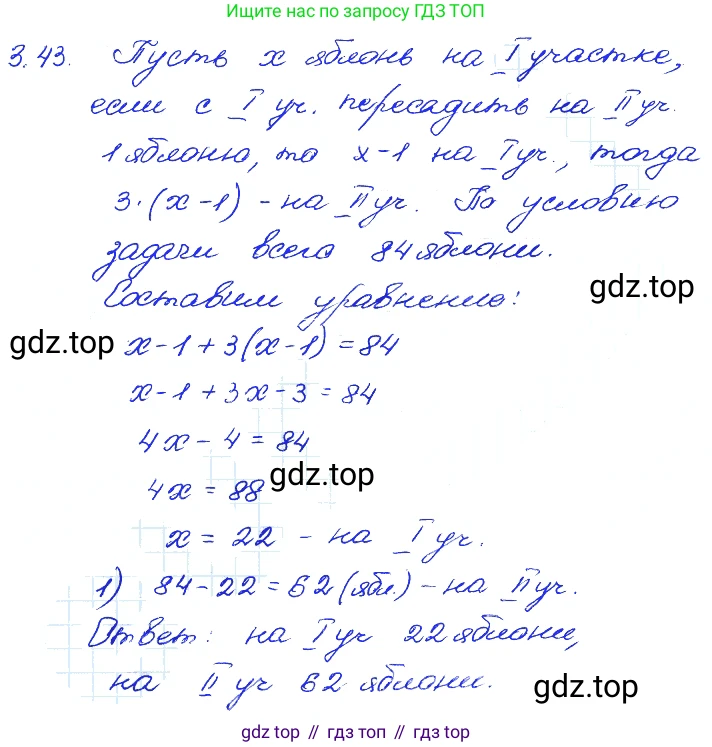 Ищите нас по запросу ГДЗ ТОП
3.43. Пусть x яблонь на I участке,
если с I уч. пересадить на II уч.
1 яблоню, то x-1 на I уч., тогда
3·(x-1) - на II уч. По условию
задачи всего 84 яблони.
Составим уравнение:
gdz.top
gdz.top
x-1+3(x-1)=84
x-1+3x-3=84
4x-4=84
gdz.top
4x=88
x=22 - на I уч.
1) 84-22=62 (ябл.) - на II уч.
Ответ: на I уч 22 яблони,
на II уч 62 яблони.
gdz.top
gdz.top // гдз топ // gdz.top